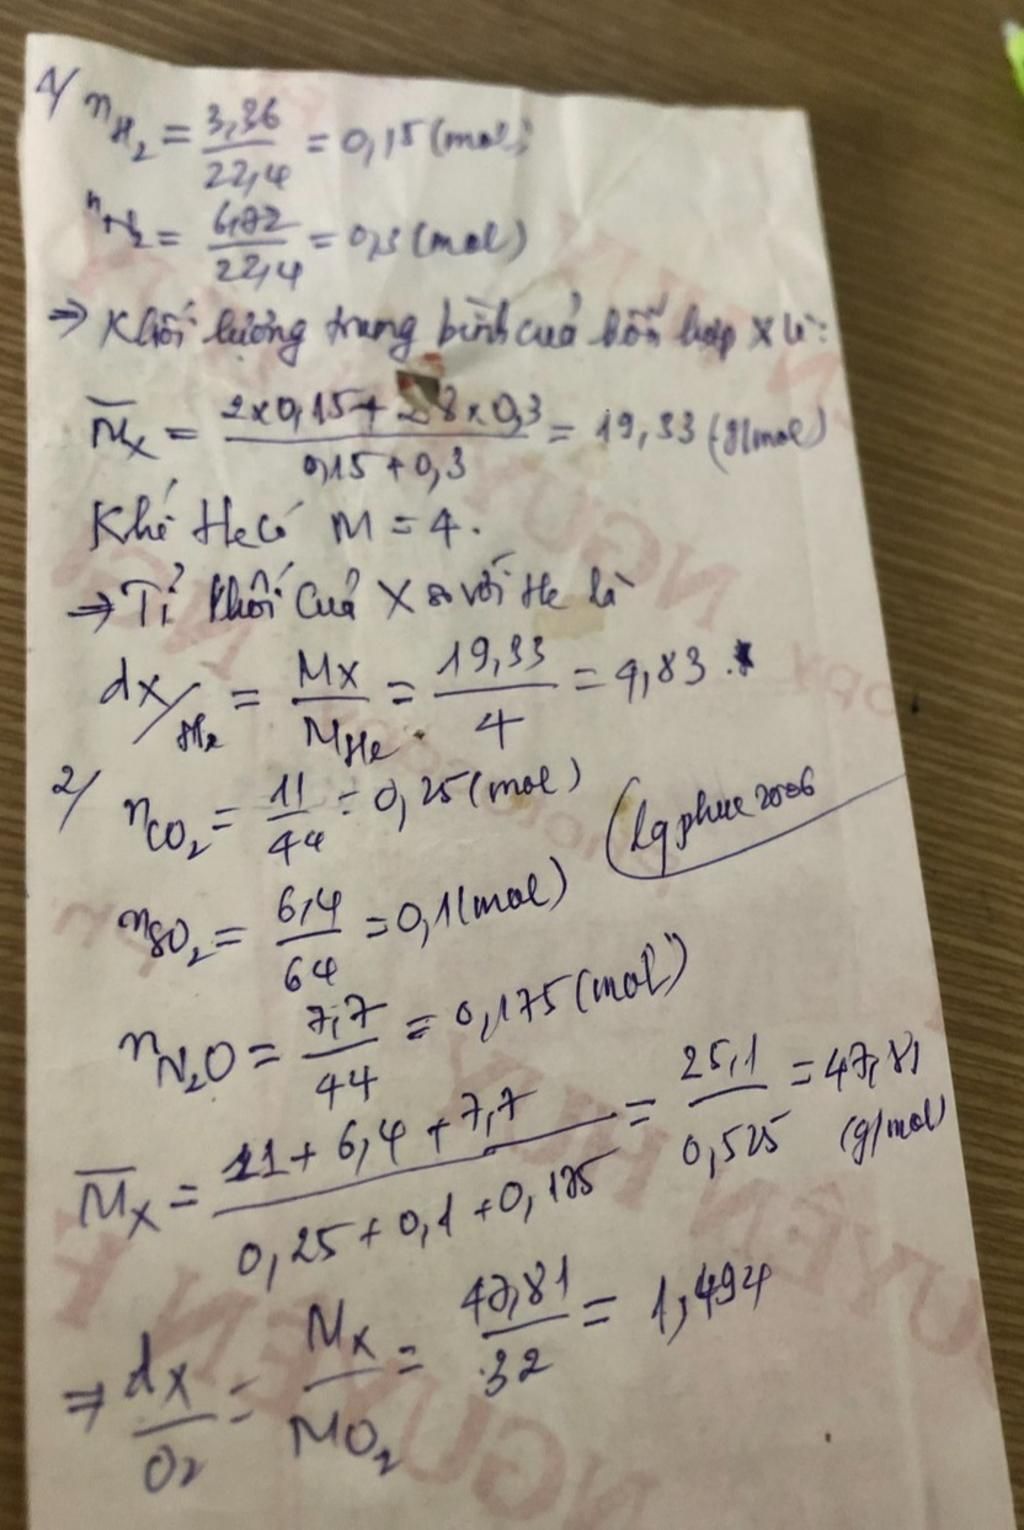 1/ nH₂ = 3,36/22,4 = 0,15 (mol)
nN₂ = 6,72/22,4 = 0,3 (mol)
⇒ Khối lượng trung bình của hỗn hợp X là:
M̅x = (2x0,15 + 28x0,3)/(0,15 + 0,3) = 19,33 (g/mol)
Khí He có M = 4.
⇒ Tỉ khối của X so với He là
dX/He = Mx/MHe = 19,33/4 = 4,83.
2/ nCO₂ = 11/44 = 0,25 (mol)
lqphuc2006
nSO₂ = 6,4/64 = 0,1 (mol)
nN₂O = 7,7/44 = 0,175 (mol)
M̅x = (11 + 6,4 + 7,7)/(0,25 + 0,1 + 0,175) = 25,1/0,525 = 47,81 (g/mol)
⇒ dX/O₂ = Mx/MO₂ = 47,81/32 = 1,494